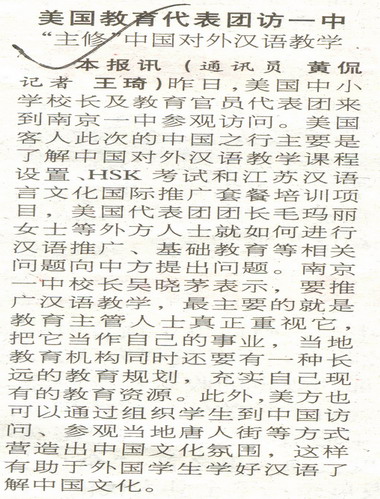 美国教育代表团访一中
“主修”中国对外汉语教学
本报讯（通讯员 黄侃
记者 王琦）昨日，美国中小
学校长及教育官员代表团来
到南京一中参观访问。美国
客人此次的中国之行主要是
了解中国对外汉语教学课程
设置、HSK 考试和江苏汉语
言文化国际推广套餐培训项
目，美国代表团团长毛玛丽
女士等外方人士就如何进行
汉语推广、基础教育等相关
问题向中方提出问题。南京
一中校长吴晓茅表示，要推
广汉语教学，最主要的就是
教育主管人士真正重视它，
把它当作自己的事业，当地
教育机构同时还要有一种长
远的教育规划，充实自己现
有的教育资源。此外，美方也
可以通过组织学生到中国访
问、参观当地唐人街等方式
营造出中国文化氛围，这样
有助于外国学生学好汉语了
解中国文化。